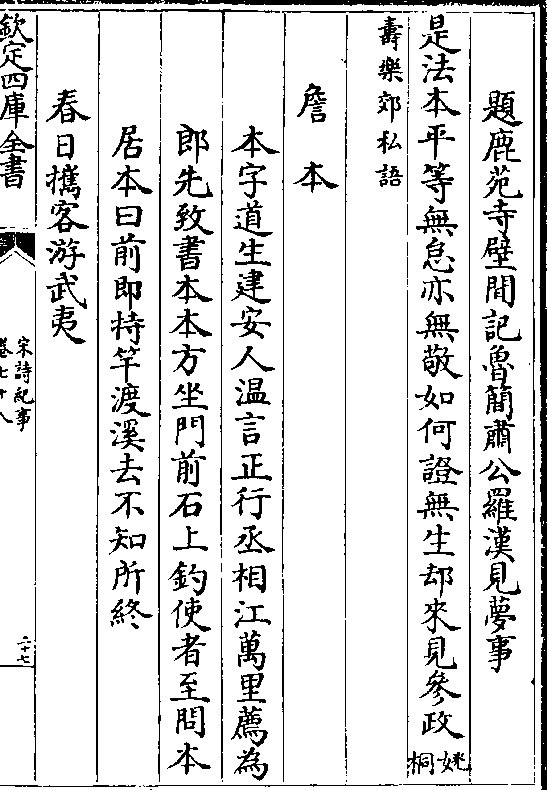 題鹿苑寺壁間記魯簡肅公羅漢見夢事
是法本平等無怠亦無敬如何證無生却來見參政姚桐
壽樂郊私語
詹本
本字道生建安人温言正行丞相江萬里薦為
郎先致書本本方坐門前石上釣使者至問本
居本曰前即持竿渡溪去不知所終
春日攜客游武夷
欽定四庫全書
宋詩紀事
卷七十八
二十七